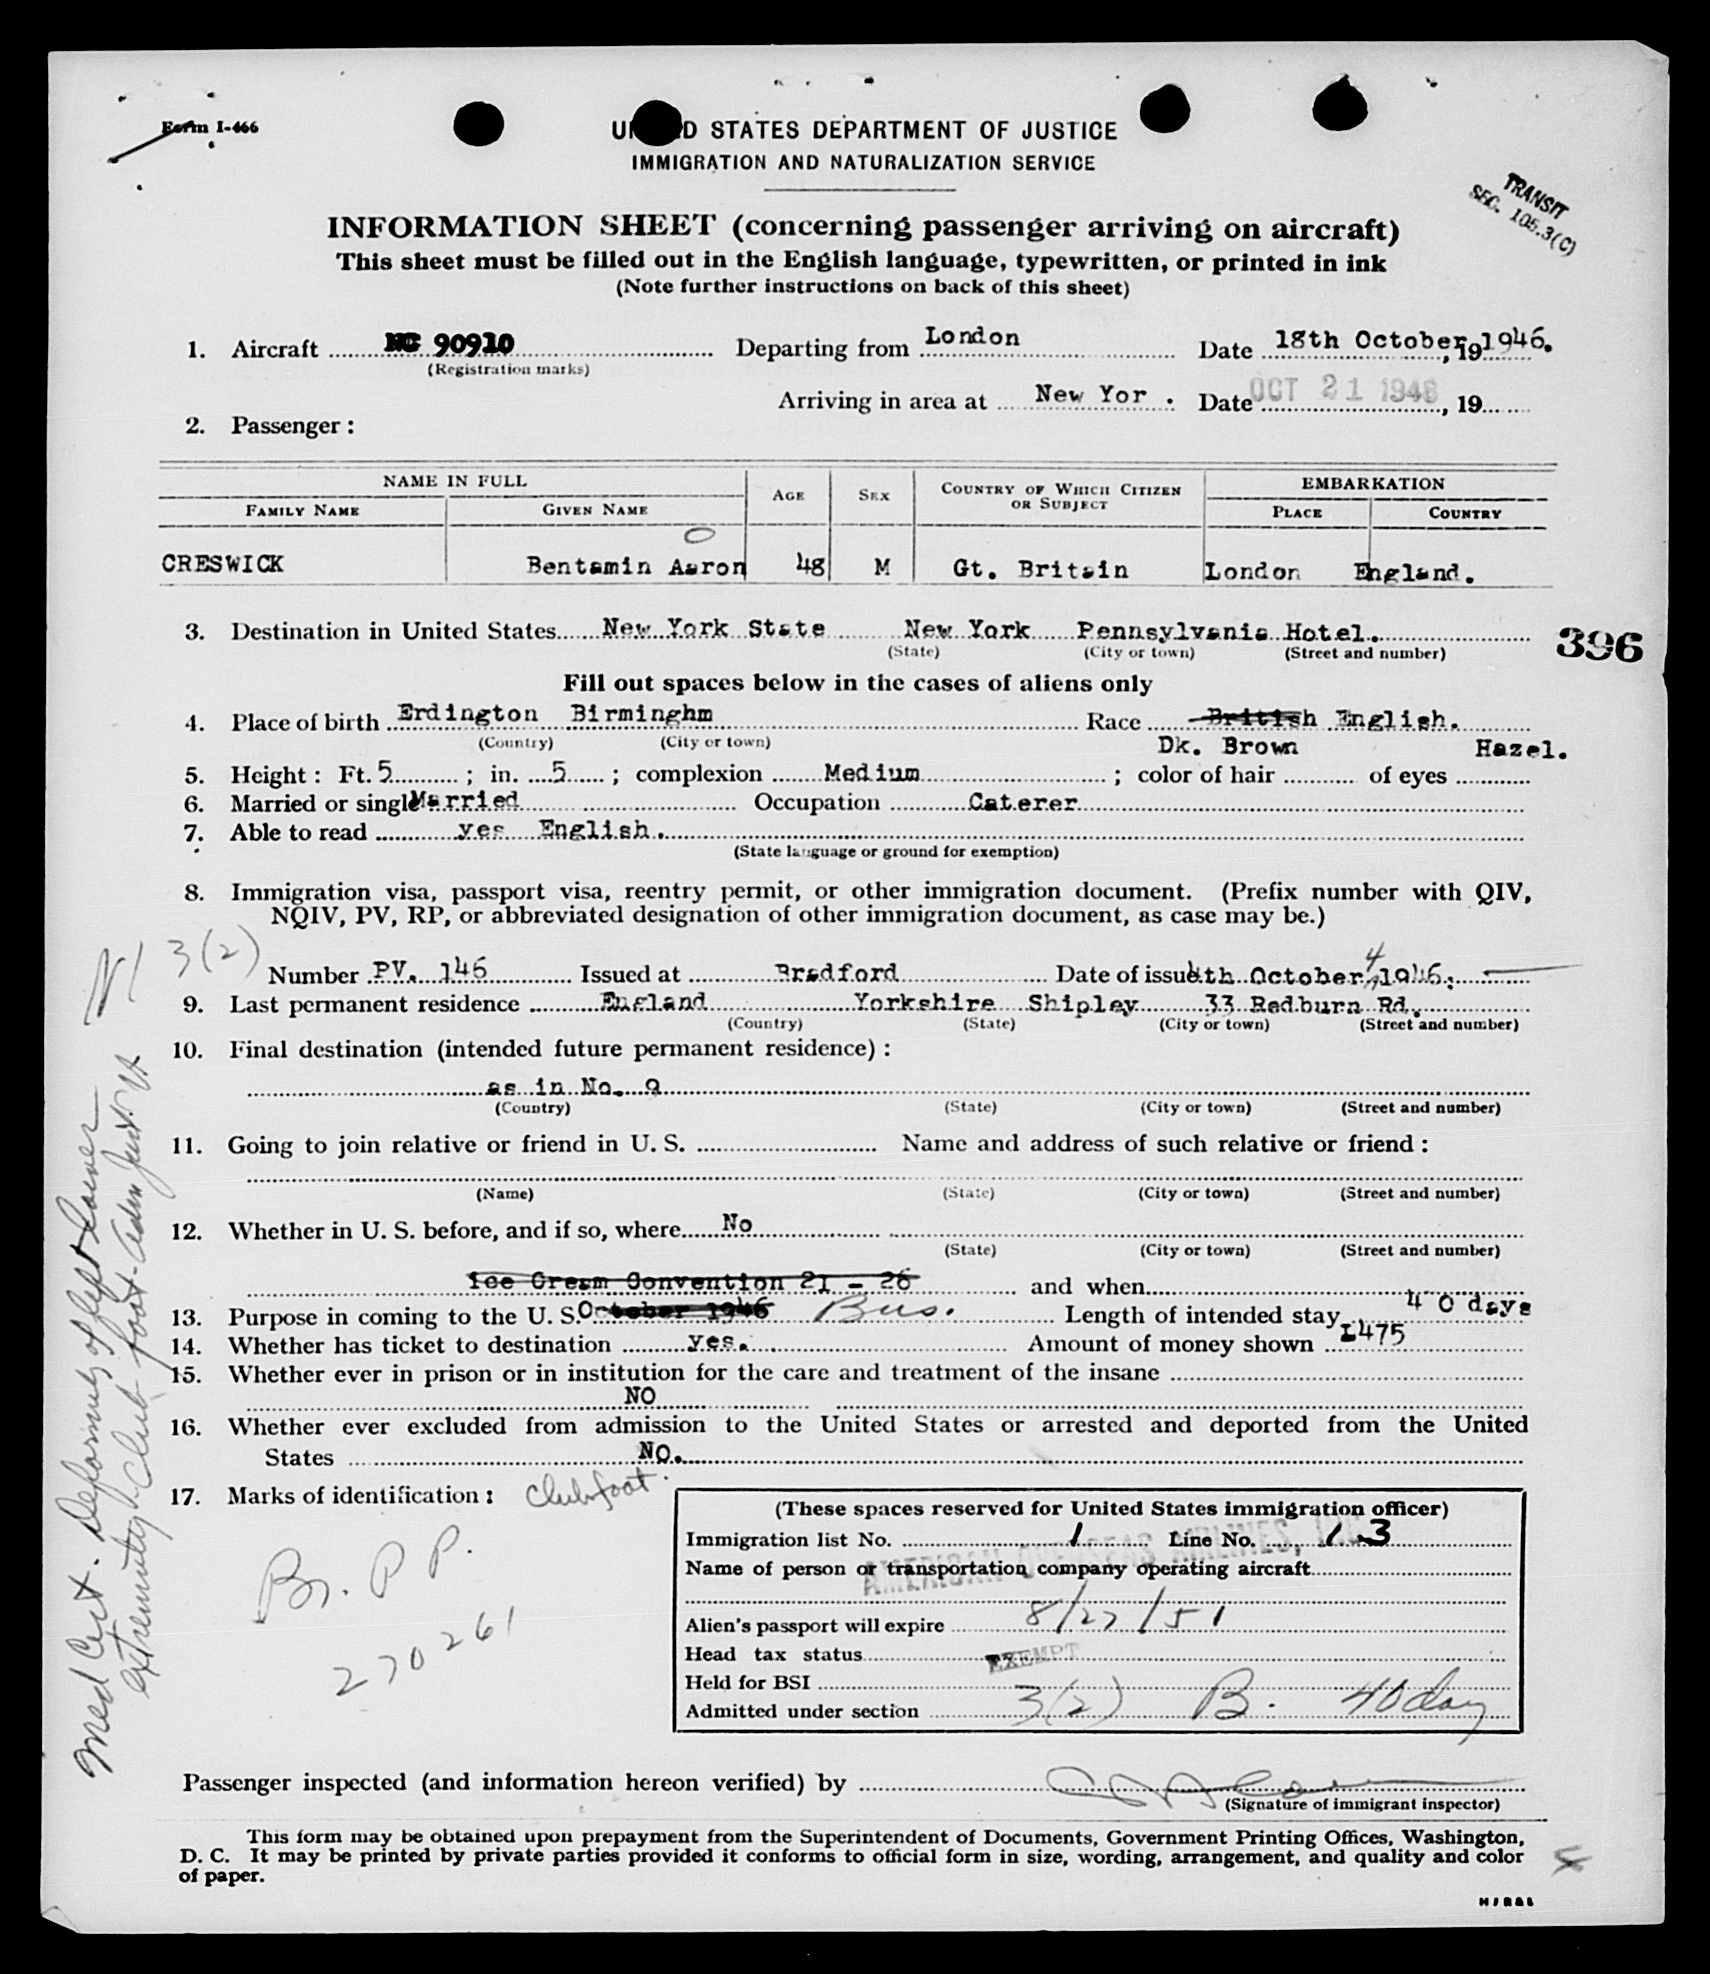 Form I-466
UNITED STATES DEPARTMENT OF JUSTICE
IMMIGRATION AND NATURALIZATION SERVICE
TRANSIT
SEC. 105.3(C)
INFORMATION SHEET (concerning passenger arriving on aircraft)
This sheet must be filled out in the English language, typewritten, or printed in ink
(Note further instructions on back of this sheet)
1. Aircraft NC 90910 Departing from London Date 18th October, 19 1946.
(Registration marks)
Arriving in area at New Yor . Date OCT 21 1946, 19
2. Passenger :
NAME IN FULL AGE SEX COUNTRY OF WHICH CITIZEN OR SUBJECT EMBARKATION
FAMILY NAME GIVEN NAME PLACE COUNTRY
CRESWICK Bentamin Aaron 48 M Gt. Britain London England.
3. Destination in United States New York State New York Pennsylvania Hotel. 396
(State) (City or town) (Street and number)
Fill out spaces below in the cases of aliens only
4. Place of birth Erdington Birminghm Race British English.
(Country) (City or town)
Dk. Brown Hazel.
5. Height : Ft. 5 ; in. 5 ; complexion Medium ; color of hair of eyes
6. Married or single Married Occupation Caterer
7. Able to read yes English.
(State language or ground for exemption)
8. Immigration visa, passport visa, reentry permit, or other immigration document. (Prefix number with QIV,
NQIV, PV, RP, or abbreviated designation of other immigration document, as case may be.)
3(2)
Number PV. 146 Issued at Bradford Date of issue 4th October 4 1946.
9. Last permanent residence England Yorkshire Shipley 33 Redburn Rd.
(Country) (State) (City or town) (Street and number)
10. Final destination (intended future permanent residence) :
as in No. 9
(Country) (State) (City or town) (Street and number)
11. Going to join relative or friend in U. S. Name and address of such relative or friend :
(Name) (State) (City or town) (Street and number)
12. Whether in U. S. before, and if so, where No
(State) (City or town) (Street and number)
Ice Cream Convention 21 - 26 and when
13. Purpose in coming to the U. S. October 1946 Bus. Length of intended stay 40 days
14. Whether has ticket to destination yes. Amount of money shown £475
15. Whether ever in prison or in institution for the care and treatment of the insane
NO
16. Whether ever excluded from admission to the United States or arrested and deported from the United
States NO.
17. Marks of identification : Clubfoot.
Br. P P.
270261
Med Cert. Deformity of left lower
extremity, Club foot-
(These spaces reserved for United States immigration officer)
Immigration list No. 1 Line No. 13
AMERICAN OVERSEAS AIRLINES, INC.
Name of person or transportation company operating aircraft
Alien's passport will expire 8/27/51
Head tax status EXEMPT
Held for BSI
Admitted under section 3(2) B. 40 day
Passenger inspected (and information hereon verified) by
(Signature of immigrant inspector)
This form may be obtained upon prepayment from the Superintendent of Documents, Government Printing Offices, Washington,
D. C. It may be printed by private parties provided it conforms to official form in size, wording, arrangement, and quality and color
of paper.
4